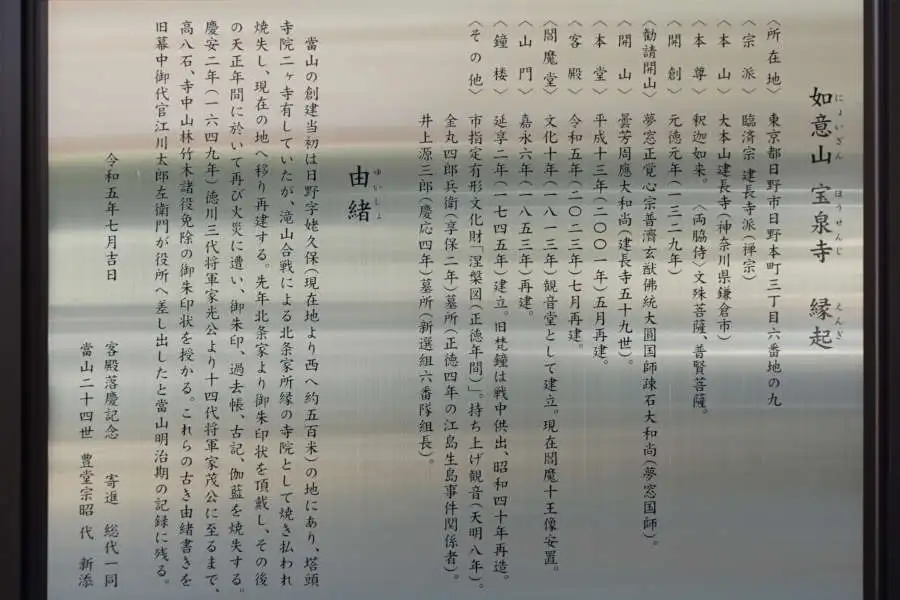 如意山 宝泉寺 縁起
にょいざん ほうせんじ えんぎ
〈所在地〉 東京都日野市日野本町三丁目六番地の九
〈宗派〉 臨済宗 建長寺派(禅宗)
〈本山〉 大本山建長寺(神奈川県鎌倉市)
〈本尊〉 釈迦如来。〈両脇侍〉文殊菩薩、普賢菩薩。
〈開創〉 元徳元年(一三二九年)
〈勧請開山〉 夢窓正覚心宗普濟玄猷佛統大圓国師疎石大和尚(夢窓国師)。
〈開山〉 曇芳周應大和尚(建長寺五十九世)。
〈本堂〉 平成十三年(二〇〇一年)五月再建。
〈客殿〉 令和五年(二〇二三年)七月再建。
〈閻魔堂〉 文化十年(一八一三年)観音堂として建立。現在閻魔十王像安置。
〈山門〉 嘉永六年(一八五三年)再建。
〈鐘楼〉 延享二年(一七四五年)建立。旧梵鐘は戦中供出、昭和四十年再造。
〈その他〉 市指定有形文化財「涅槃図(正徳年間)」。持ち上げ観音(天明八年)。
金丸四郎兵衛(享保二年)墓所(正徳四年の江島生島事件関係者)。
井上源三郎(慶応四年)墓所(新選組六番隊組長)。
由緒
ゆいしょ
當山の創建当初は日野字姥久保(現在地より西へ約五百米)の地にあり、塔頭
寺院二ヶ寺有していたが、滝山合戦による北条家所縁の寺院として焼き払われ
焼失し、現在の地へ移り再建する。先年北条家より御朱印状を頂戴し、その後
の天正年間に於いて再び火災に遭い、御朱印、過去帳、古記、伽藍を焼失する。
慶安二年(一六四九年)徳川三代将軍家光公より十四代将軍家茂公に至るまで、
高八石、寺中山林竹木諸役免除の御朱印状を授かる。これらの古き由緒書きを
旧幕中御代官江川太郎左衛門が役所へ差し出したと當山明治期の記録に残る。
令和五年七月吉日
客殿落慶記念 寄進 総代一同
當山二十四世 豊堂宗昭 代 新添